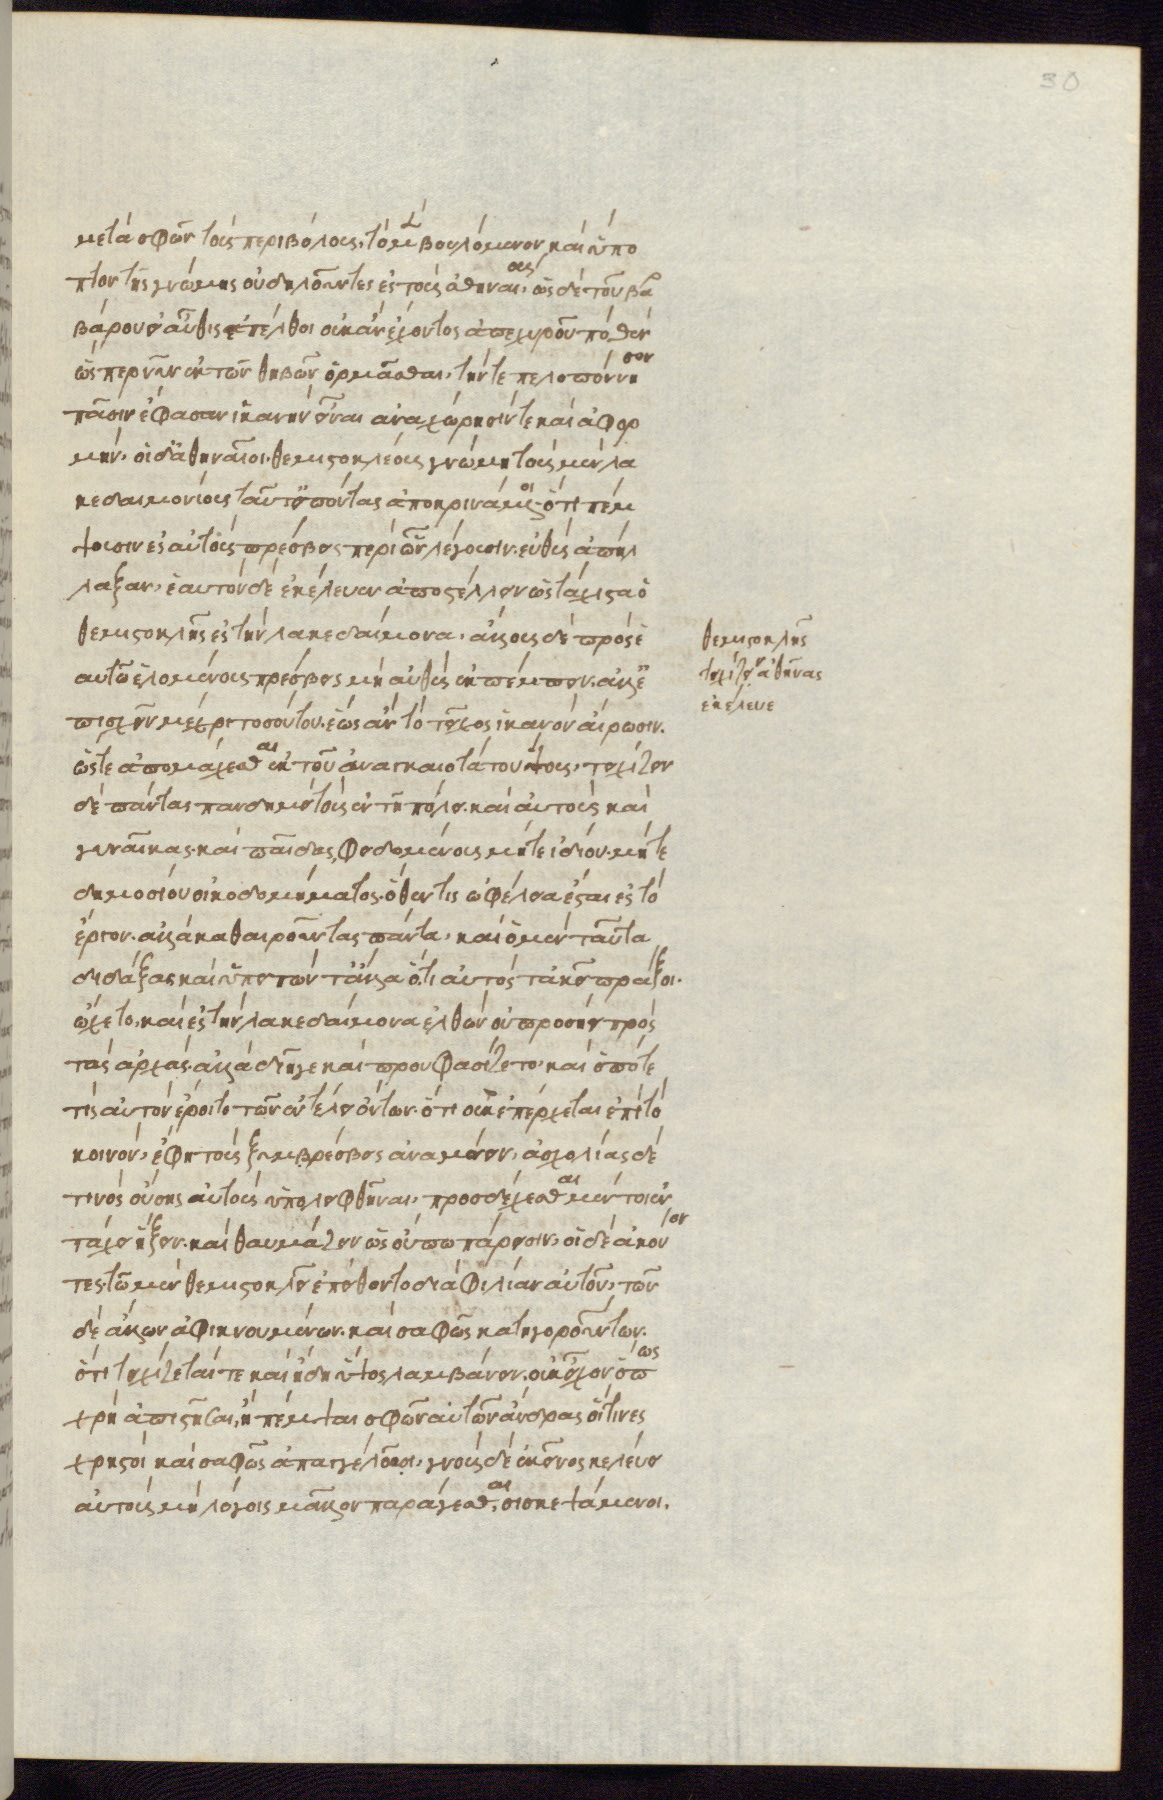 30
μετὰ σφῶν τοὺς περιβόλους, τὸ μὲν βουλόμενον καὶ ὕπο
πτον τῆς γνώμης οὐ δηλοῦντες ἐς τοὺς ἀθηναίους, ὡς δὲ τοῦ βαρ
βάρου εἰ αὖθις ἐπέλθοι οὐκ ἂν ἔχοντος ἀπ' ἐχυροῦ ποθεν
ὥσπερ νῦν ἐκ τῶν θηβῶν ὁρμᾶσθαι, τήν τε πελοπόννησον
πᾶσιν ἔφασαν ἱκανὴν εἶναι ἀναχώρησίν τε καὶ ἀφορ
μήν. οἱ δ' ἀθηναῖοι θεμιστοκλέους γνώμῃ τοὺς μὲν λα
κεδαιμονίους ταῦτ' εἰπόντας ἀποκρινάμενοι ὅτι πέμ
ψουσιν ἐς αὐτοὺς πρέσβεις περὶ ὧν λέγουσιν εὐθὺς ἀπήλ
λαξαν, ἑαυτὸν δὲ ἐκέλευεν ἀποστέλλειν ὡς τάχιστα ὁ
θεμιστοκλῆς ἐς τὴν λακεδαίμονα, ἄλλους δὲ πρὸς ἑ
αυτῷ ἑλομένους πρέσβεις μὴ εὐθὺς ἐκπέμπειν, ἀλλ' ἐ
πισχεῖν μέχρι τοσούτου ἕως ἂν τὸ τεῖχος ἱκανὸν αἴρωσιν.
ὥστε ἀπομάχεσθαι ἐκ τοῦ ἀναγκαιοτάτου ὕψους, τειχίζειν
δὲ πάντας πανδημεὶ τοὺς ἐν τῇ πόλει. καὶ αὐτοὺς καὶ
γυναῖκας καὶ παῖδας, φειδομένους μήτε ἰδίου μήτε
δημοσίου οἰκοδομήματος ὅθεν τις ὠφέλεια ἔσται ἐς τὸ
ἔργον. ἀλλὰ καθαιροῦντας πάντα, καὶ ὁ μὲν ταῦτα
διδάξας καὶ ὑπειπὼν τἆλλα ὅτι αὐτὸς τἀκεῖ πράξοι.
ᾤχετο, καὶ ἐς τὴν λακεδαίμονα ἐλθὼν οὐ προσῄει πρὸς
τὰς ἀρχάς. ἀλλὰ διῆγε καὶ προυφασίζετο, καὶ ὁπότε
τις αὐτὸν ἔροιτο τῶν ἐν τέλει ὄντων ὅτι οὐκ ἐπέρχεται ἐπὶ τὸ
κοινόν, ἔφη τοὺς ξυμπρέσβεις ἀναμένειν, ἀσχολίας δέ
τινος οὔσης αὐτοὺς ὑπολειφθῆναι, προσδέχεσθαι μέντοι ἐν
τάχει ἥξειν καὶ θαυμάζειν ὡς οὔπω πάρεισιν, οἱ δὲ ἀκούον
τες τῷ μὲν θεμιστοκλεῖ ἐπείθοντο διὰ φιλίαν αὐτοῦ, τῶν
δὲ ἄλλων ἀφικνουμένων καὶ σαφῶς κατηγορούντων.
ὅτι τειχίζεταί τε καὶ ἤδη ὕψος λαμβάνει, οὐκ εἶχον ὅπως
χρὴ ἀπιστῆσαι, ἢ πέμψαι σφῶν αὐτῶν ἄνδρας οἵτινες
χρηστοὶ καὶ σαφῶς ἀπαγγελοῦσι, γνοὺς δὲ ἐκεῖνος κελεύει
αὐτοὺς μὴ λόγοις μᾶλλον παράγεσθαι, οἱ σκεψάμενοι.
θεμιστοκλῆς
τειχίζειν ἀθήνας
ἐκέλευε